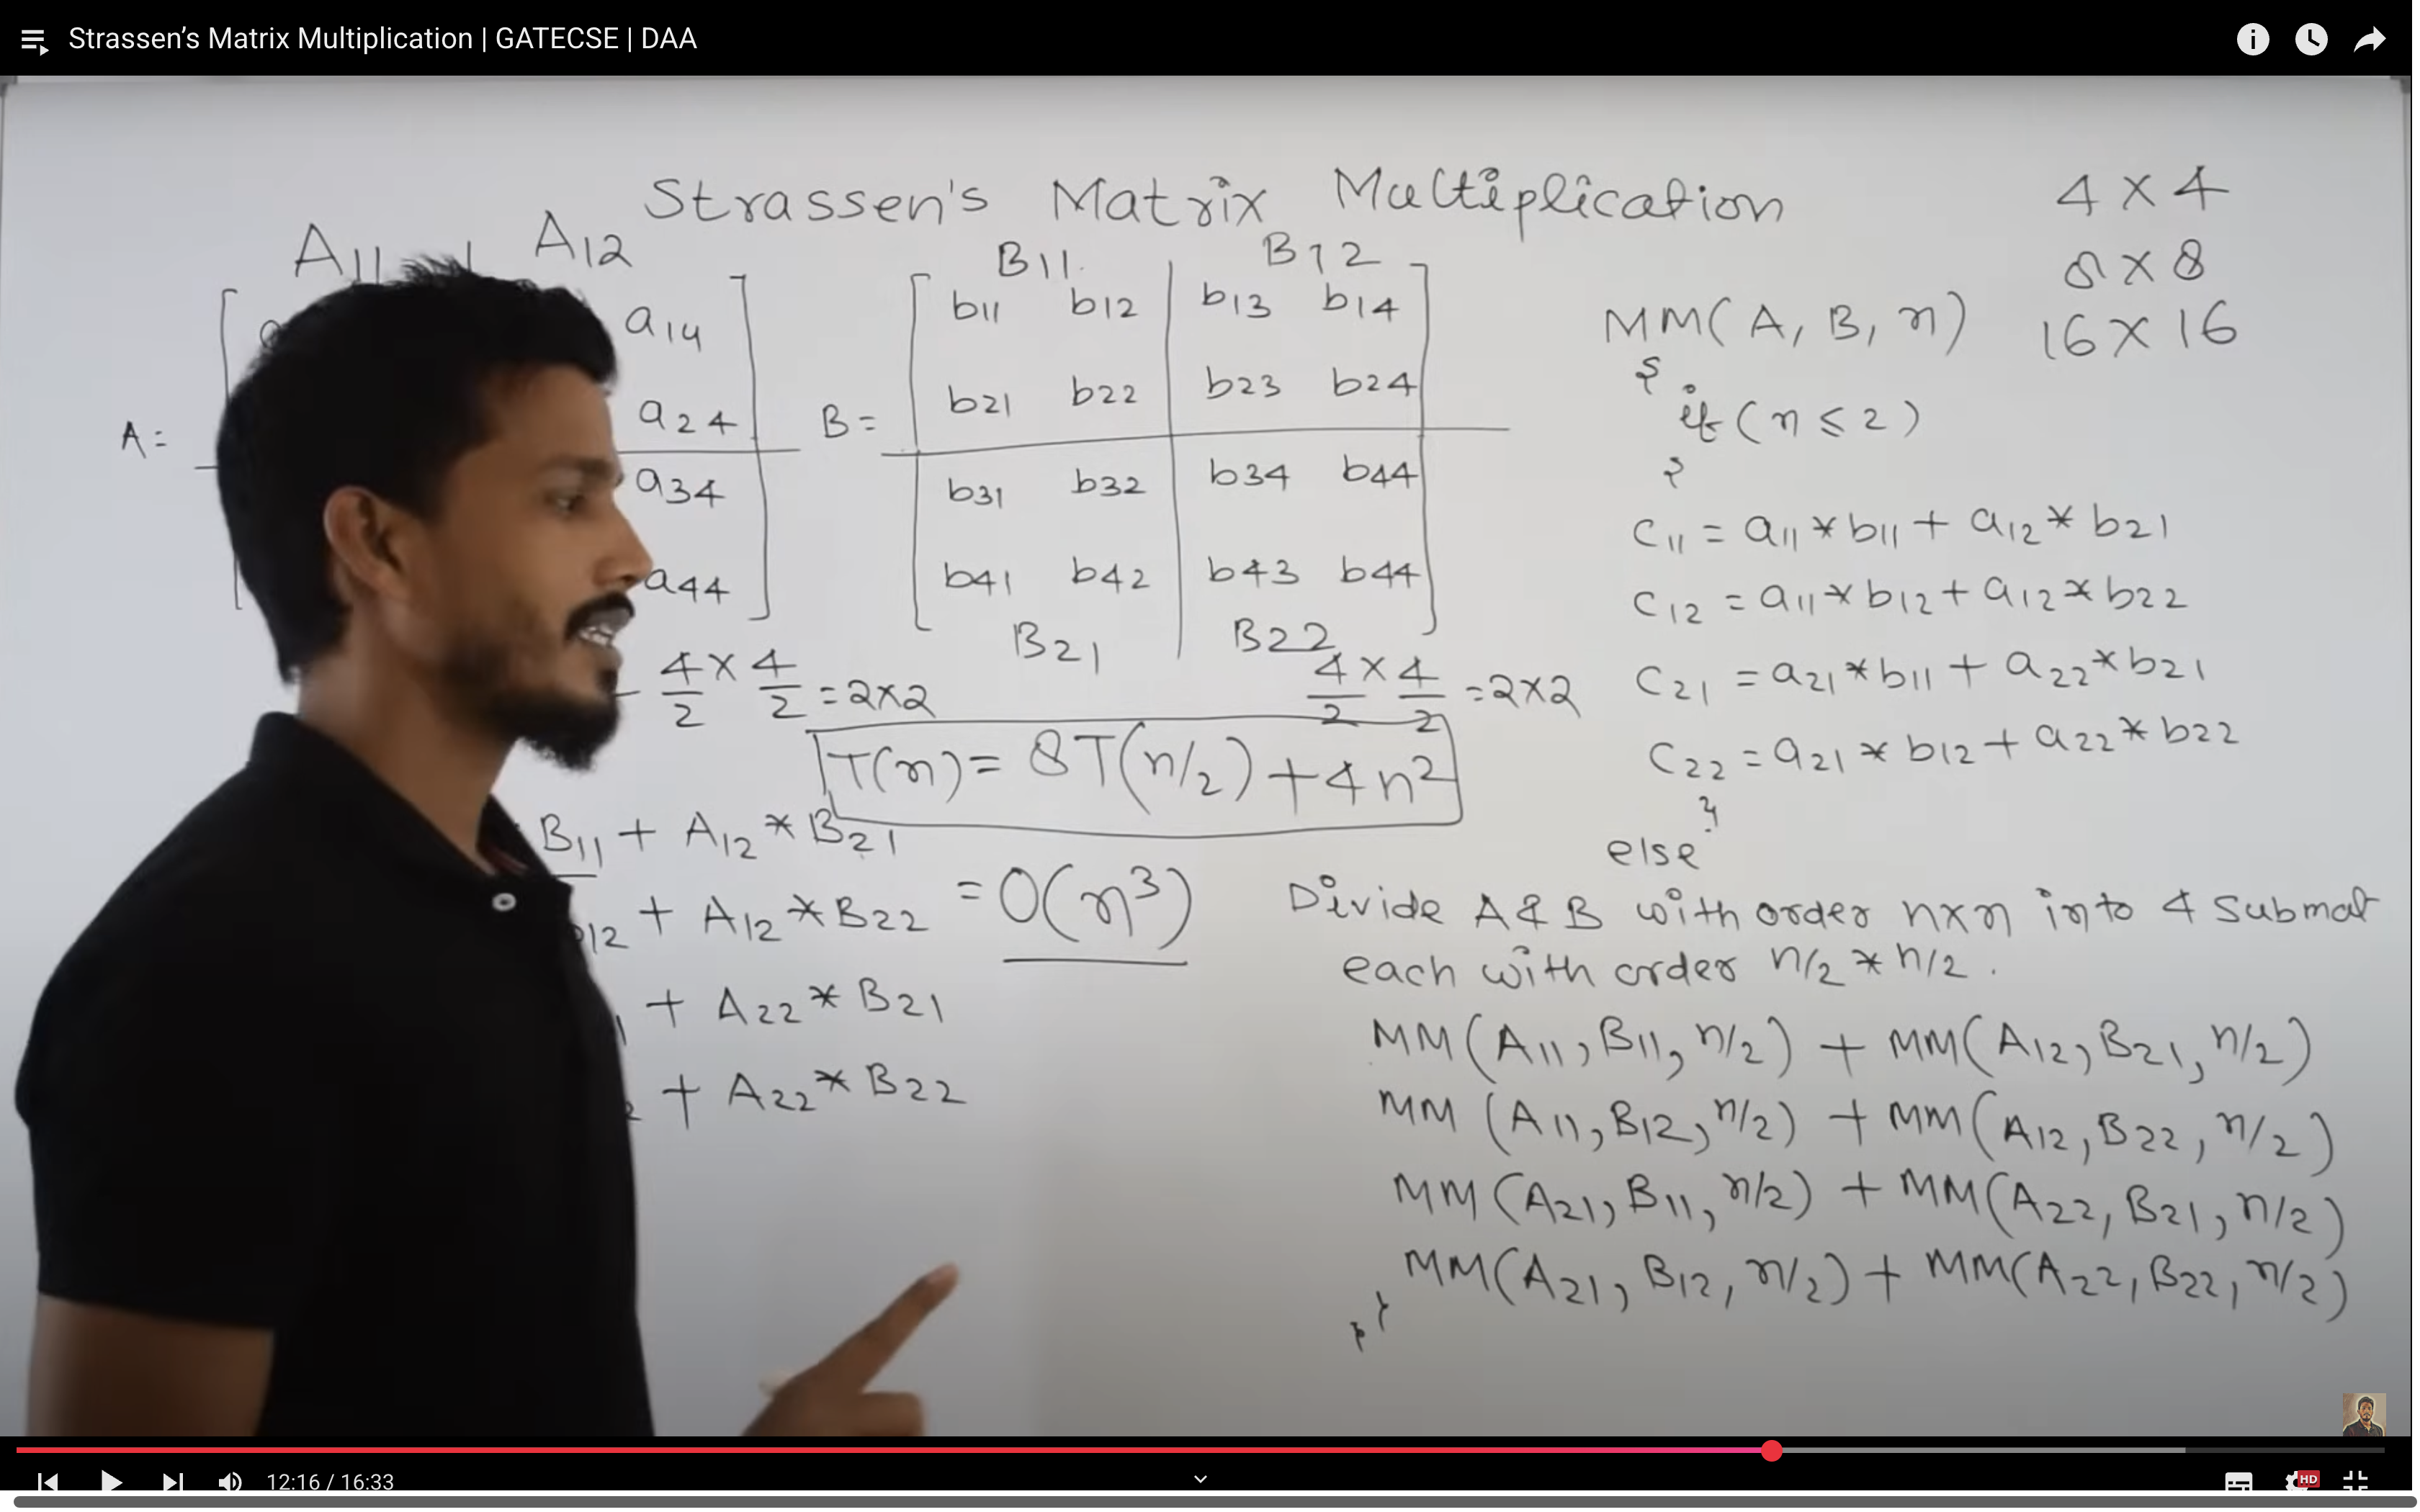 Strassen's Matrix Multiplication | GATECSE | DAA
Strassen's Matrix Multiplication
A11 A12
a14
a24
A=
a34
a44
4/2 × 4/2 = 2×2
B11 B12
b11 b12 b13 b14
b21 b22 b23 b24
B=
b31 b32 b34 b44
b41 b42 b43 b44
B21 B22
4/2 × 4/2 = 2×2
T(n) = 8T(n/2) + 4n²
= O(n³)
B11 + A12 * B21
B12 + A12 * B22
+ A22 * B21
+ A22 * B22
4 × 4
8 × 8
16 × 16
MM(A, B, n)
{
if (n ≤ 2)
{
C11 = a11 * b11 + a12 * b21
C12 = a11 * b12 + a12 * b22
C21 = a21 * b11 + a22 * b21
C22 = a21 * b12 + a22 * b22
}
else
Divide A & B with order n×n into 4 submat
each with order n/2 * n/2.
MM(A11, B11, n/2) + MM(A12, B21, n/2)
MM(A11, B12, n/2) + MM(A12, B22, n/2)
MM(A21, B11, n/2) + MM(A22, B21, n/2)
MM(A21, B12, n/2) + MM(A22, B22, n/2)
}
12:16 / 16:33
HD